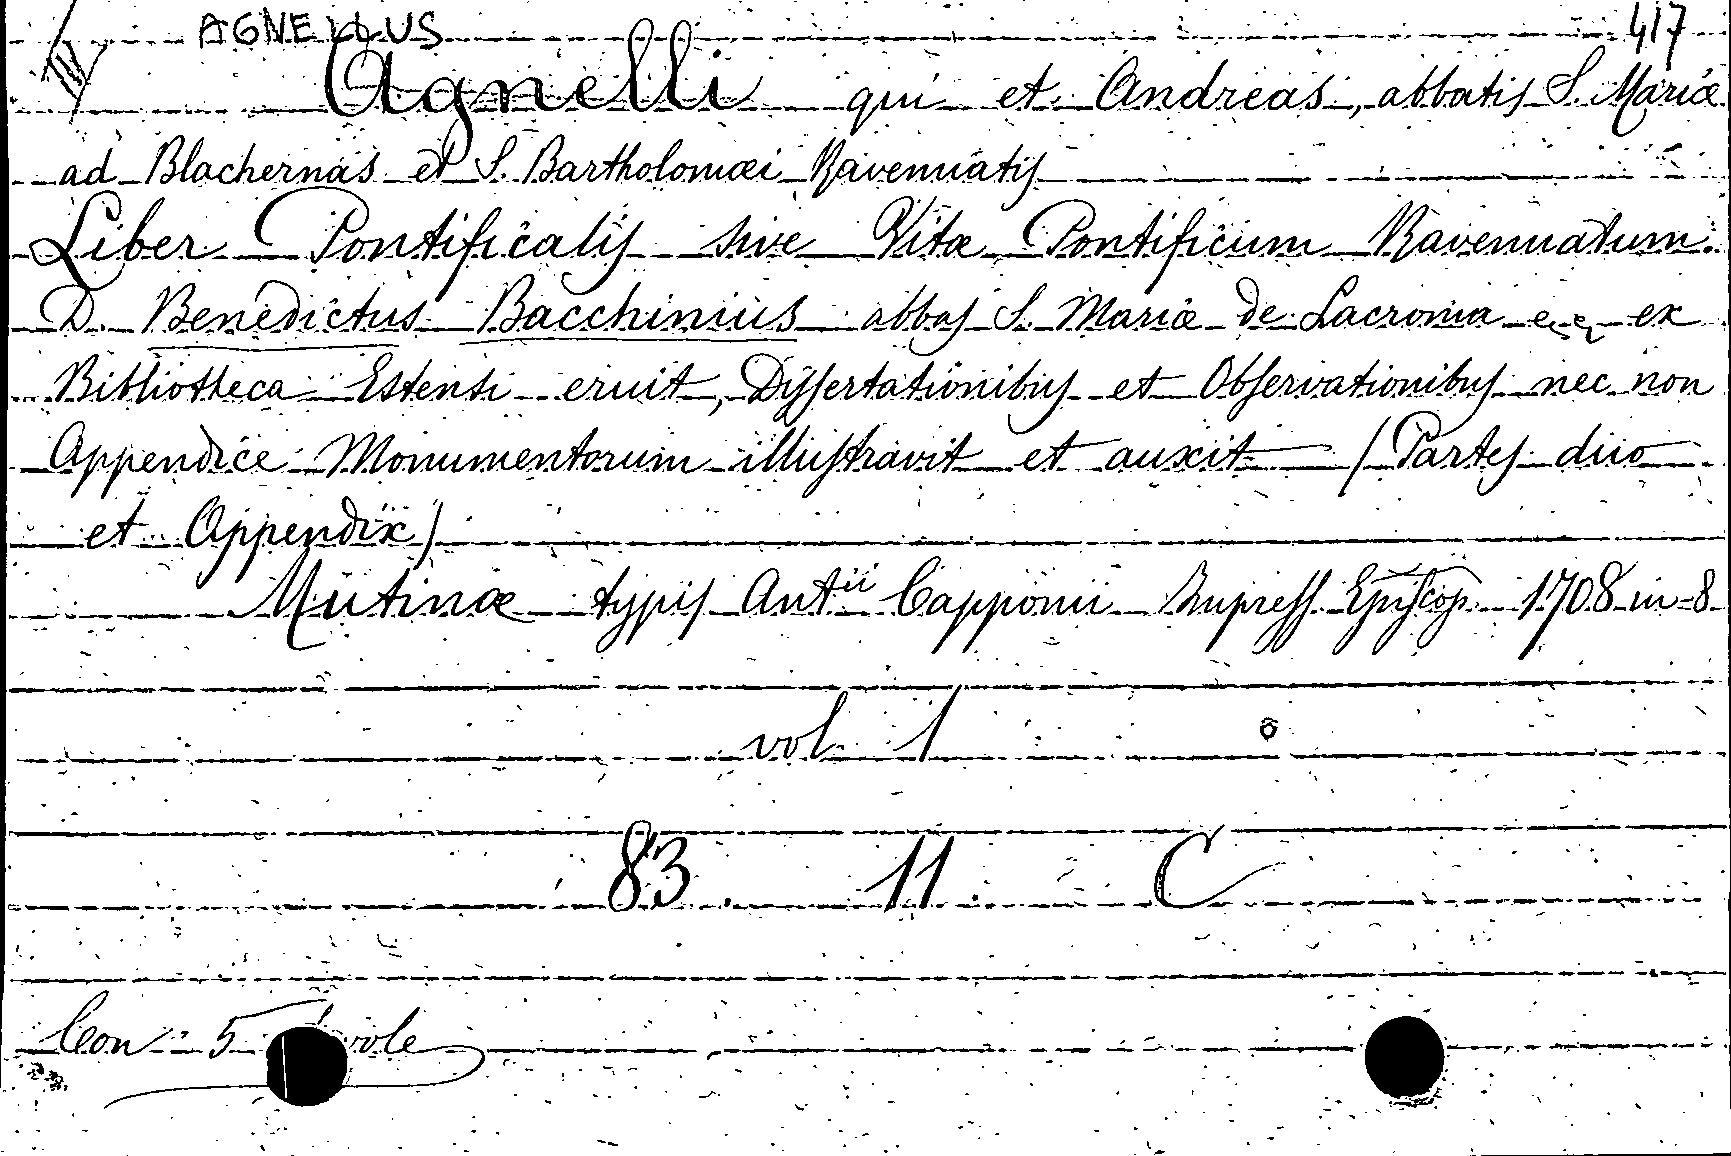 AGNELLUS 417
Agnelli qui et Andreas, abbatis S. Mariæ
ad Blachernas et S. Bartholomæi Ravennatis
Liber Pontificalis sive Vitæ Pontificum Ravennatum.
D. Benedictus Bacchinius abbas S. Mariæ de Lacroma ex
Bibliotheca Estensi eruit, Dissertationibus et Observationibus nec non
Appendice Monumentorum illustravit et auxit (Partes duo
et Appendix)
Mutinæ typis Antii Capponii Impress. Episcop. 1708 in-8
vol 1
83 11 C
Con 5 vole